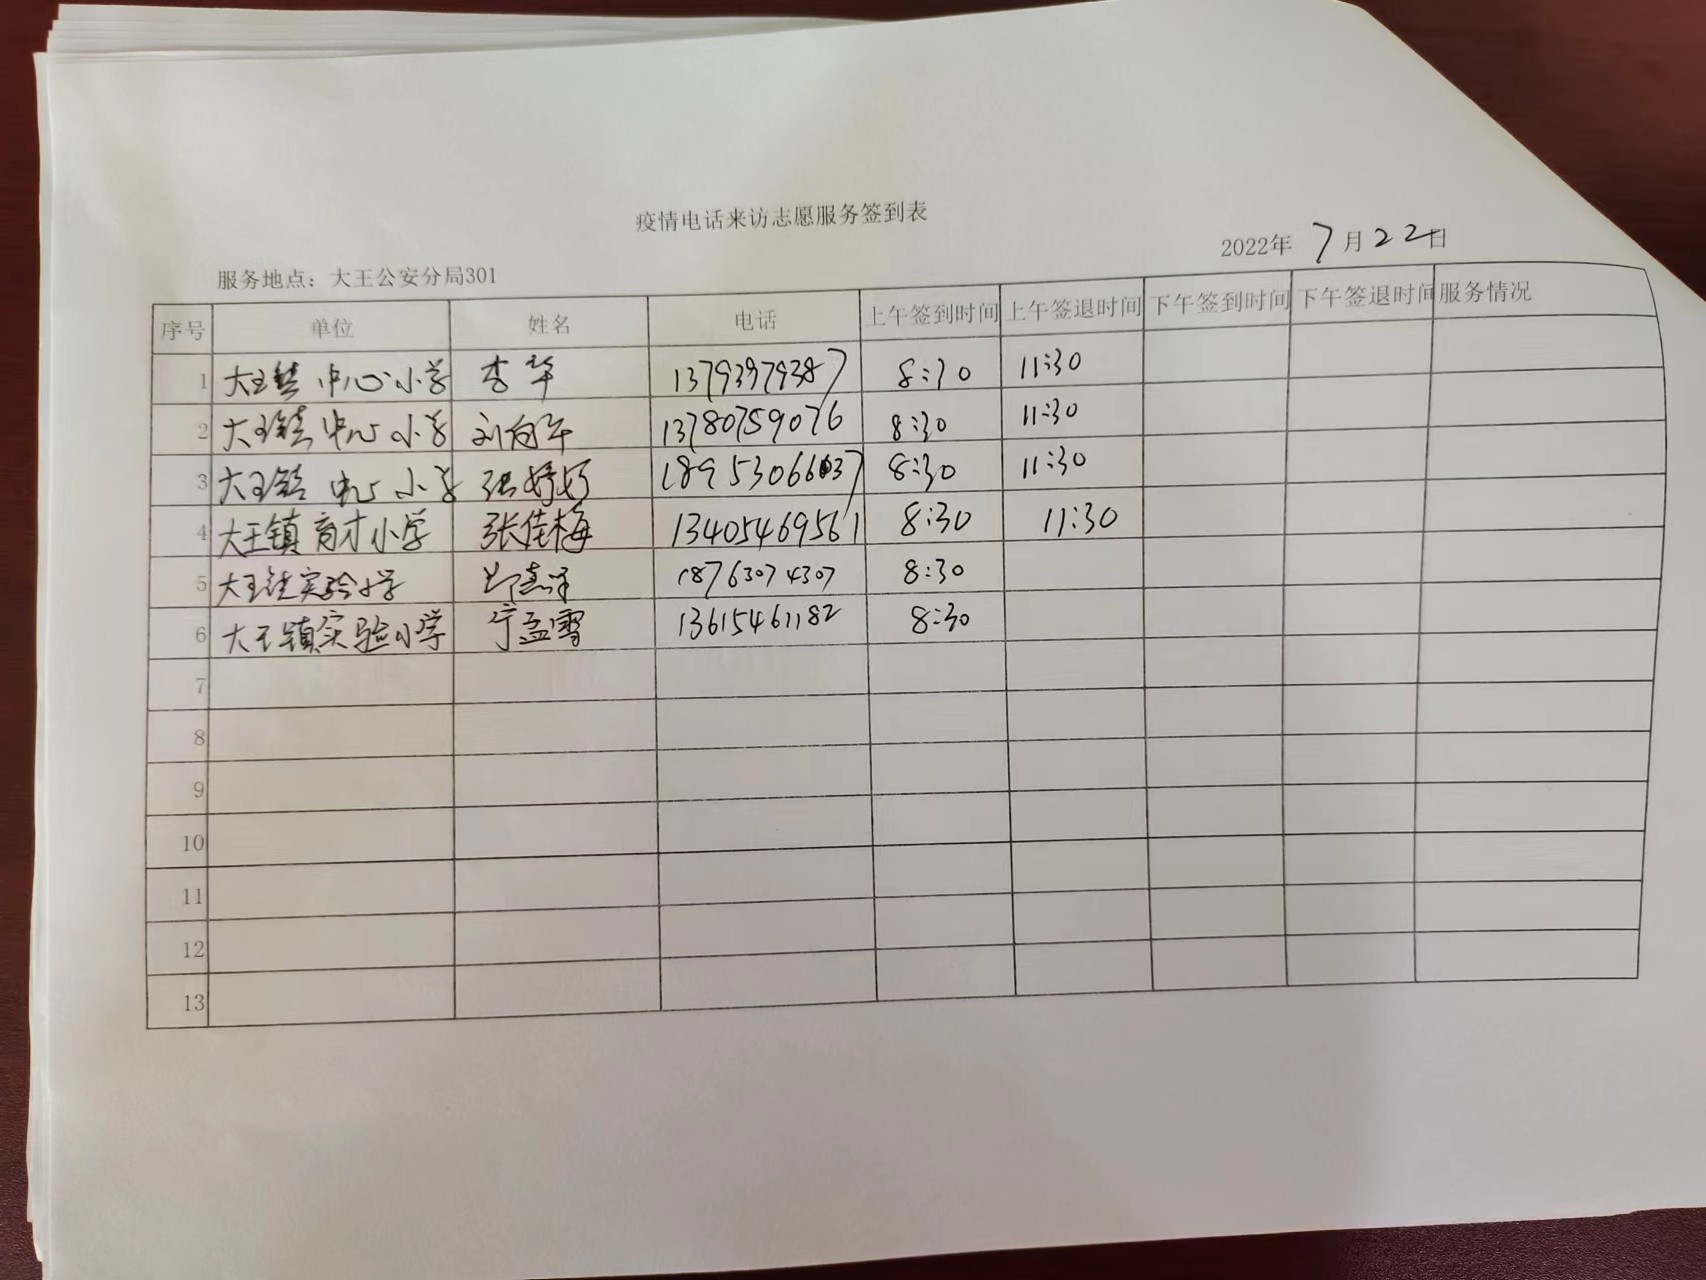 疫情电话来访志愿服务签到表
2022年 7月22日
服务地点：大王公安分局301
序号 单位 姓名 电话 上午签到时间 上午签退时间 下午签到时间 下午签退时间 服务情况
1 大王镇中心小学 李华 13793979387 8:30 11:30
2 大王镇中心小学 刘向军 13780759076 8:30 11:30
3 大王镇中心小学 张婷婷 18953066037 8:30 11:30
4 大王镇育才小学 张佳梅 13405469561 8:30 11:30
5 大王镇实验小学 18763074307 8:30
6 大王镇实验小学 宁孟雪 13615461182 8:30
7
8
9
10
11
12
13